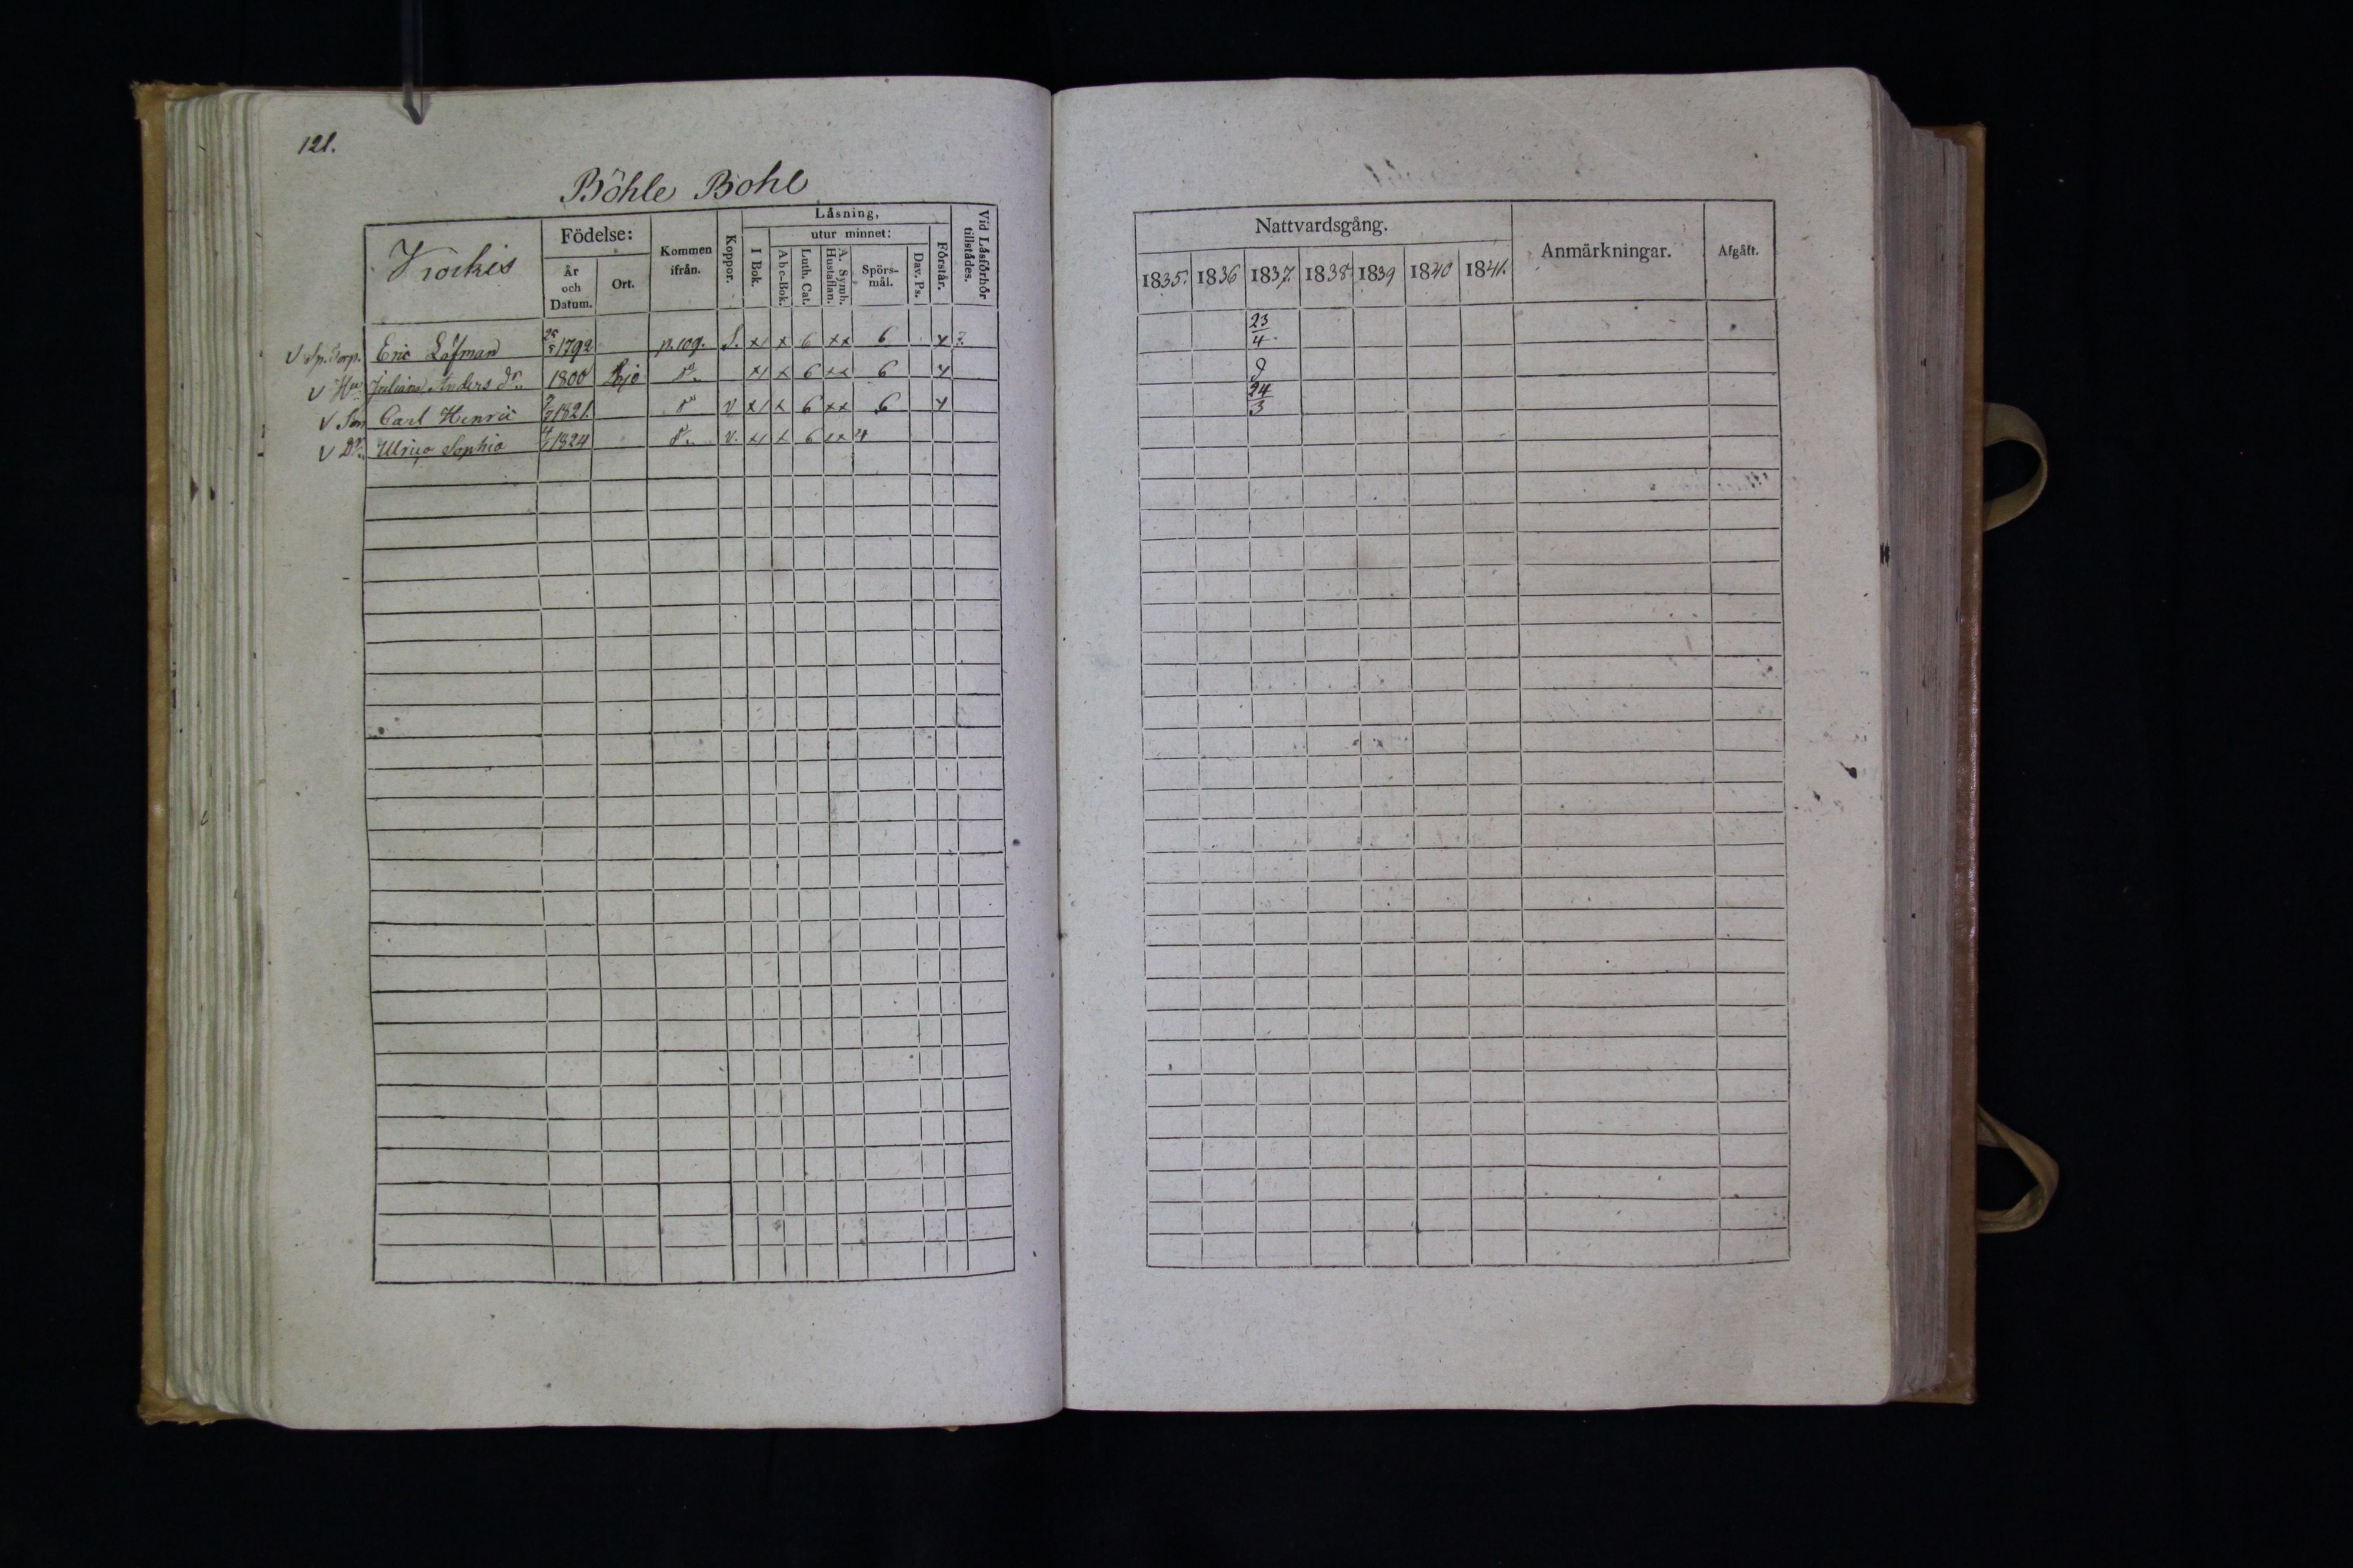 121.
Böhle Bohl
Krökis
Födelse:
År och Datum.
Ort.
Kommen ifrån.
Koppor.
Läsning,
I Bok.
utur minnet:
Abc-Bok.
Luth. Cat.
A. Symb. Hustaflan.
Spörs-mål.
Dav. Ps.
Förstår.
Vid Läsförhör tillstädes.
V Sp. Torp. Eric Löfman 1792 p. 109. S. x x 6 xx 6 x
V Hu Juliana Anders dr 1800 x x 6 xx 6 x
V Son Carl Henric 1821. v x x 6 xx 6 x
V Dr Ulrica Sophia 1824 v. x x 6 xx 4
Nattvardsgång.
1835. 1836 1837. 1838 1839 1840 1841.
Anmärkningar.
Afgått.
23/4.
d
24/3